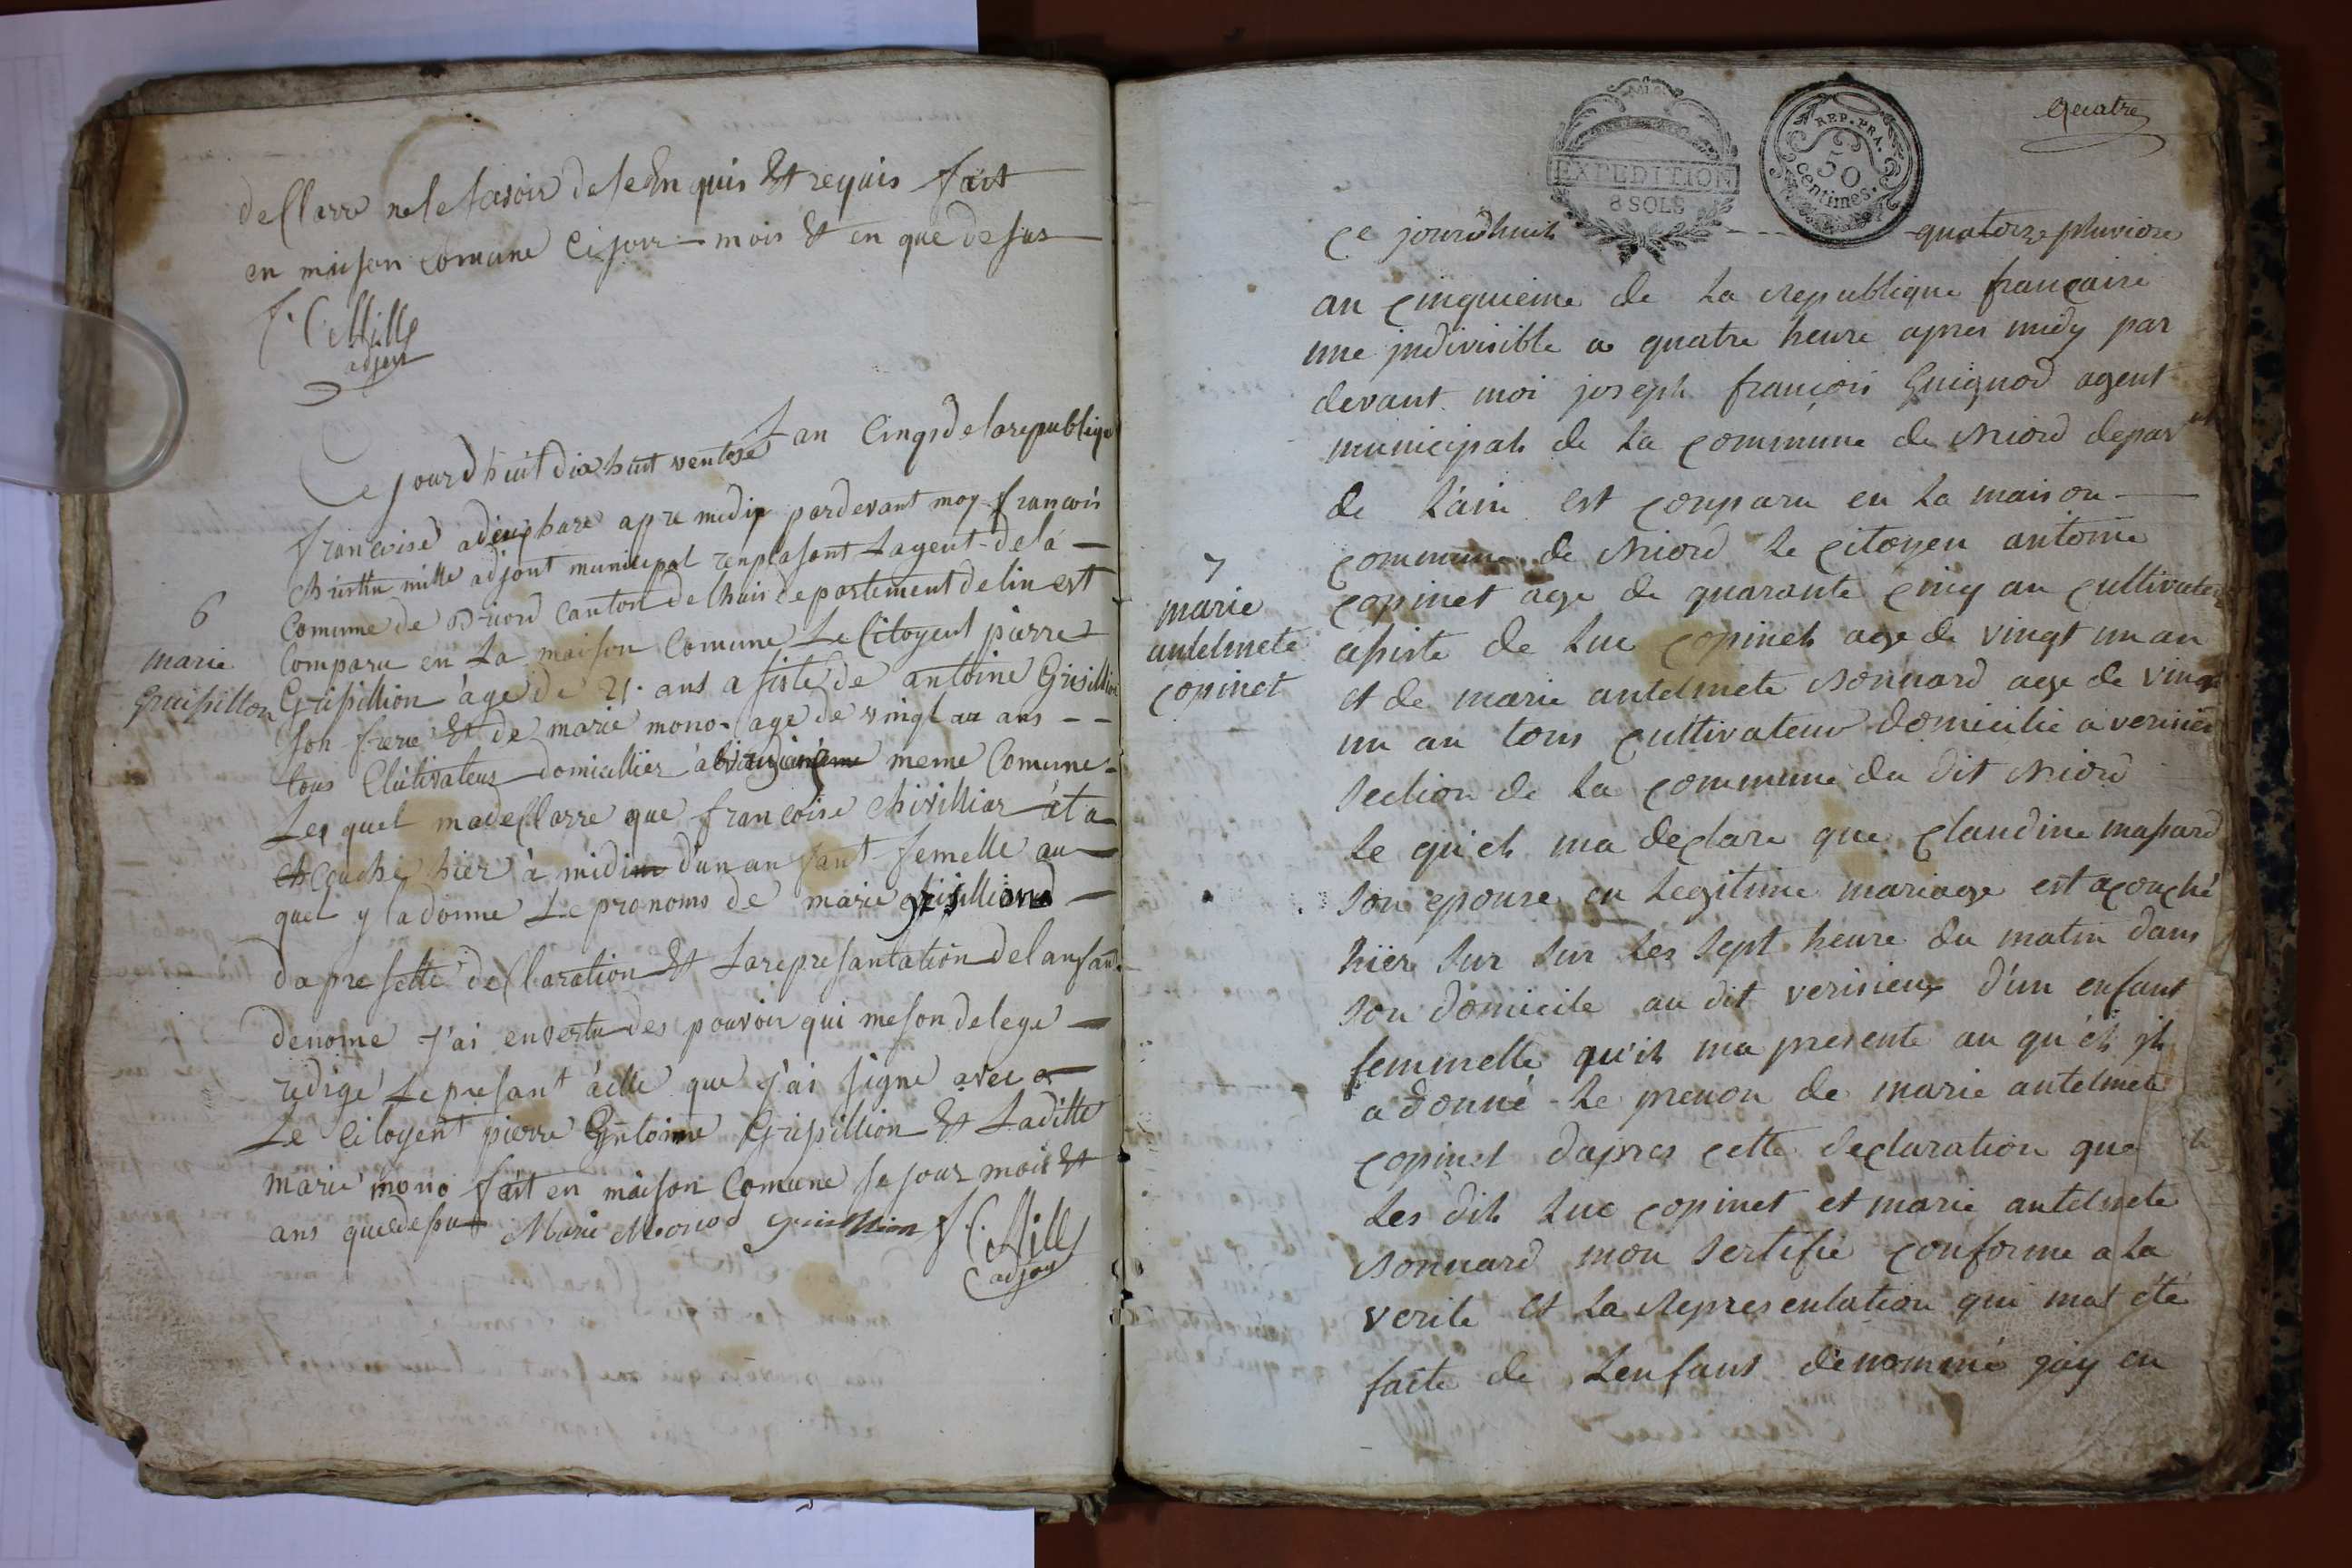 deCllarre ne le savoir de se enquis Et requis fait
en maison Comune Ce jour mois Et en que de sus
f. C. Mille
adjoin
Ce jourdhuit dix huit ventose L'an Cinqs de la republique
francoise a deuxhure apre midi pardevant moy francois
Christin mille adjont municipal renplasant Lagent de la
Comune de Briord Canton de lhuis departement de lin est
Comparu en La maison Comune Le Citoyent pierre
Gripillion age de 21 ans asisté de antoine Grisillion
son frere Et de marie mono age de vingt au ans
tous Clutivateurs domicillier à meme Comune
Lequel madeCllarre que francoise Chivilliar at a
Couche hier à midi d'un anfant femelle au
quel y la donne Le pronoms de marie grisilliond
dapre sette deCllaration Et La represantation de lanfand
denome J'ai en vertu des pouvoir qui me son delege
redigé Le presant aclle que j'ai signe avec
Le Citoyent pierre Entoine Gripillion Et Laditte
marie mono fait en maison Comune se jour mois Et
ans que desus Marie Monod f. C. Mille
adjoin
6
marie
gruisillon
quatre
EXPEDITION
8 SOLS
REP. FRA.
50
centimes.
Ce jourdhuit quatorze pluviose
an Cinquieme de La republique françaire
une jndivisible a quatre heure apres midy par
devant moi joseph françois Guignod agent
municipal de La Commune de Briord depart
de Lain est Conparu en La maison
Commune de Briord Le Citoyen antoine
Copinet age de quarante Cinq an Cultivateur
asisté de Luc Copinet age de vingt un an
et de marie antelmete Bonnard age de vingt
un an tous Cultivateur domicilié a verisieu
section de La Commune du dit Briord
Le quel ma declare que Claudine masard
son epouse en Legitime mariage est acouché
hier sur sur Les sept heure du matin dans
son domicile au dit verisieu d'un enfant
femmelle qu'il ma presenté au quel jl
a donné Le prenon de marie antelmete
Copinet dapres Cette declaration que
Les dit Luc Copinet et marie antelmete
Bonnard mon sertifié Conforme a La
verite et La representation qui mat été
faite de Lenfant denommé jay en
7
marie
antelmete
Copinet